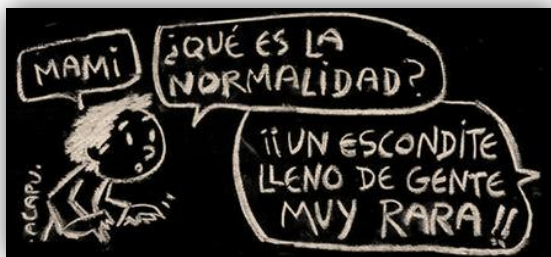 MAMI
¿QUÉ ES LA
NORMALIDAD?
¡¡UN ESCONDITE
LLENO DE GENTE
MUY RARA!!
.ACAPU.